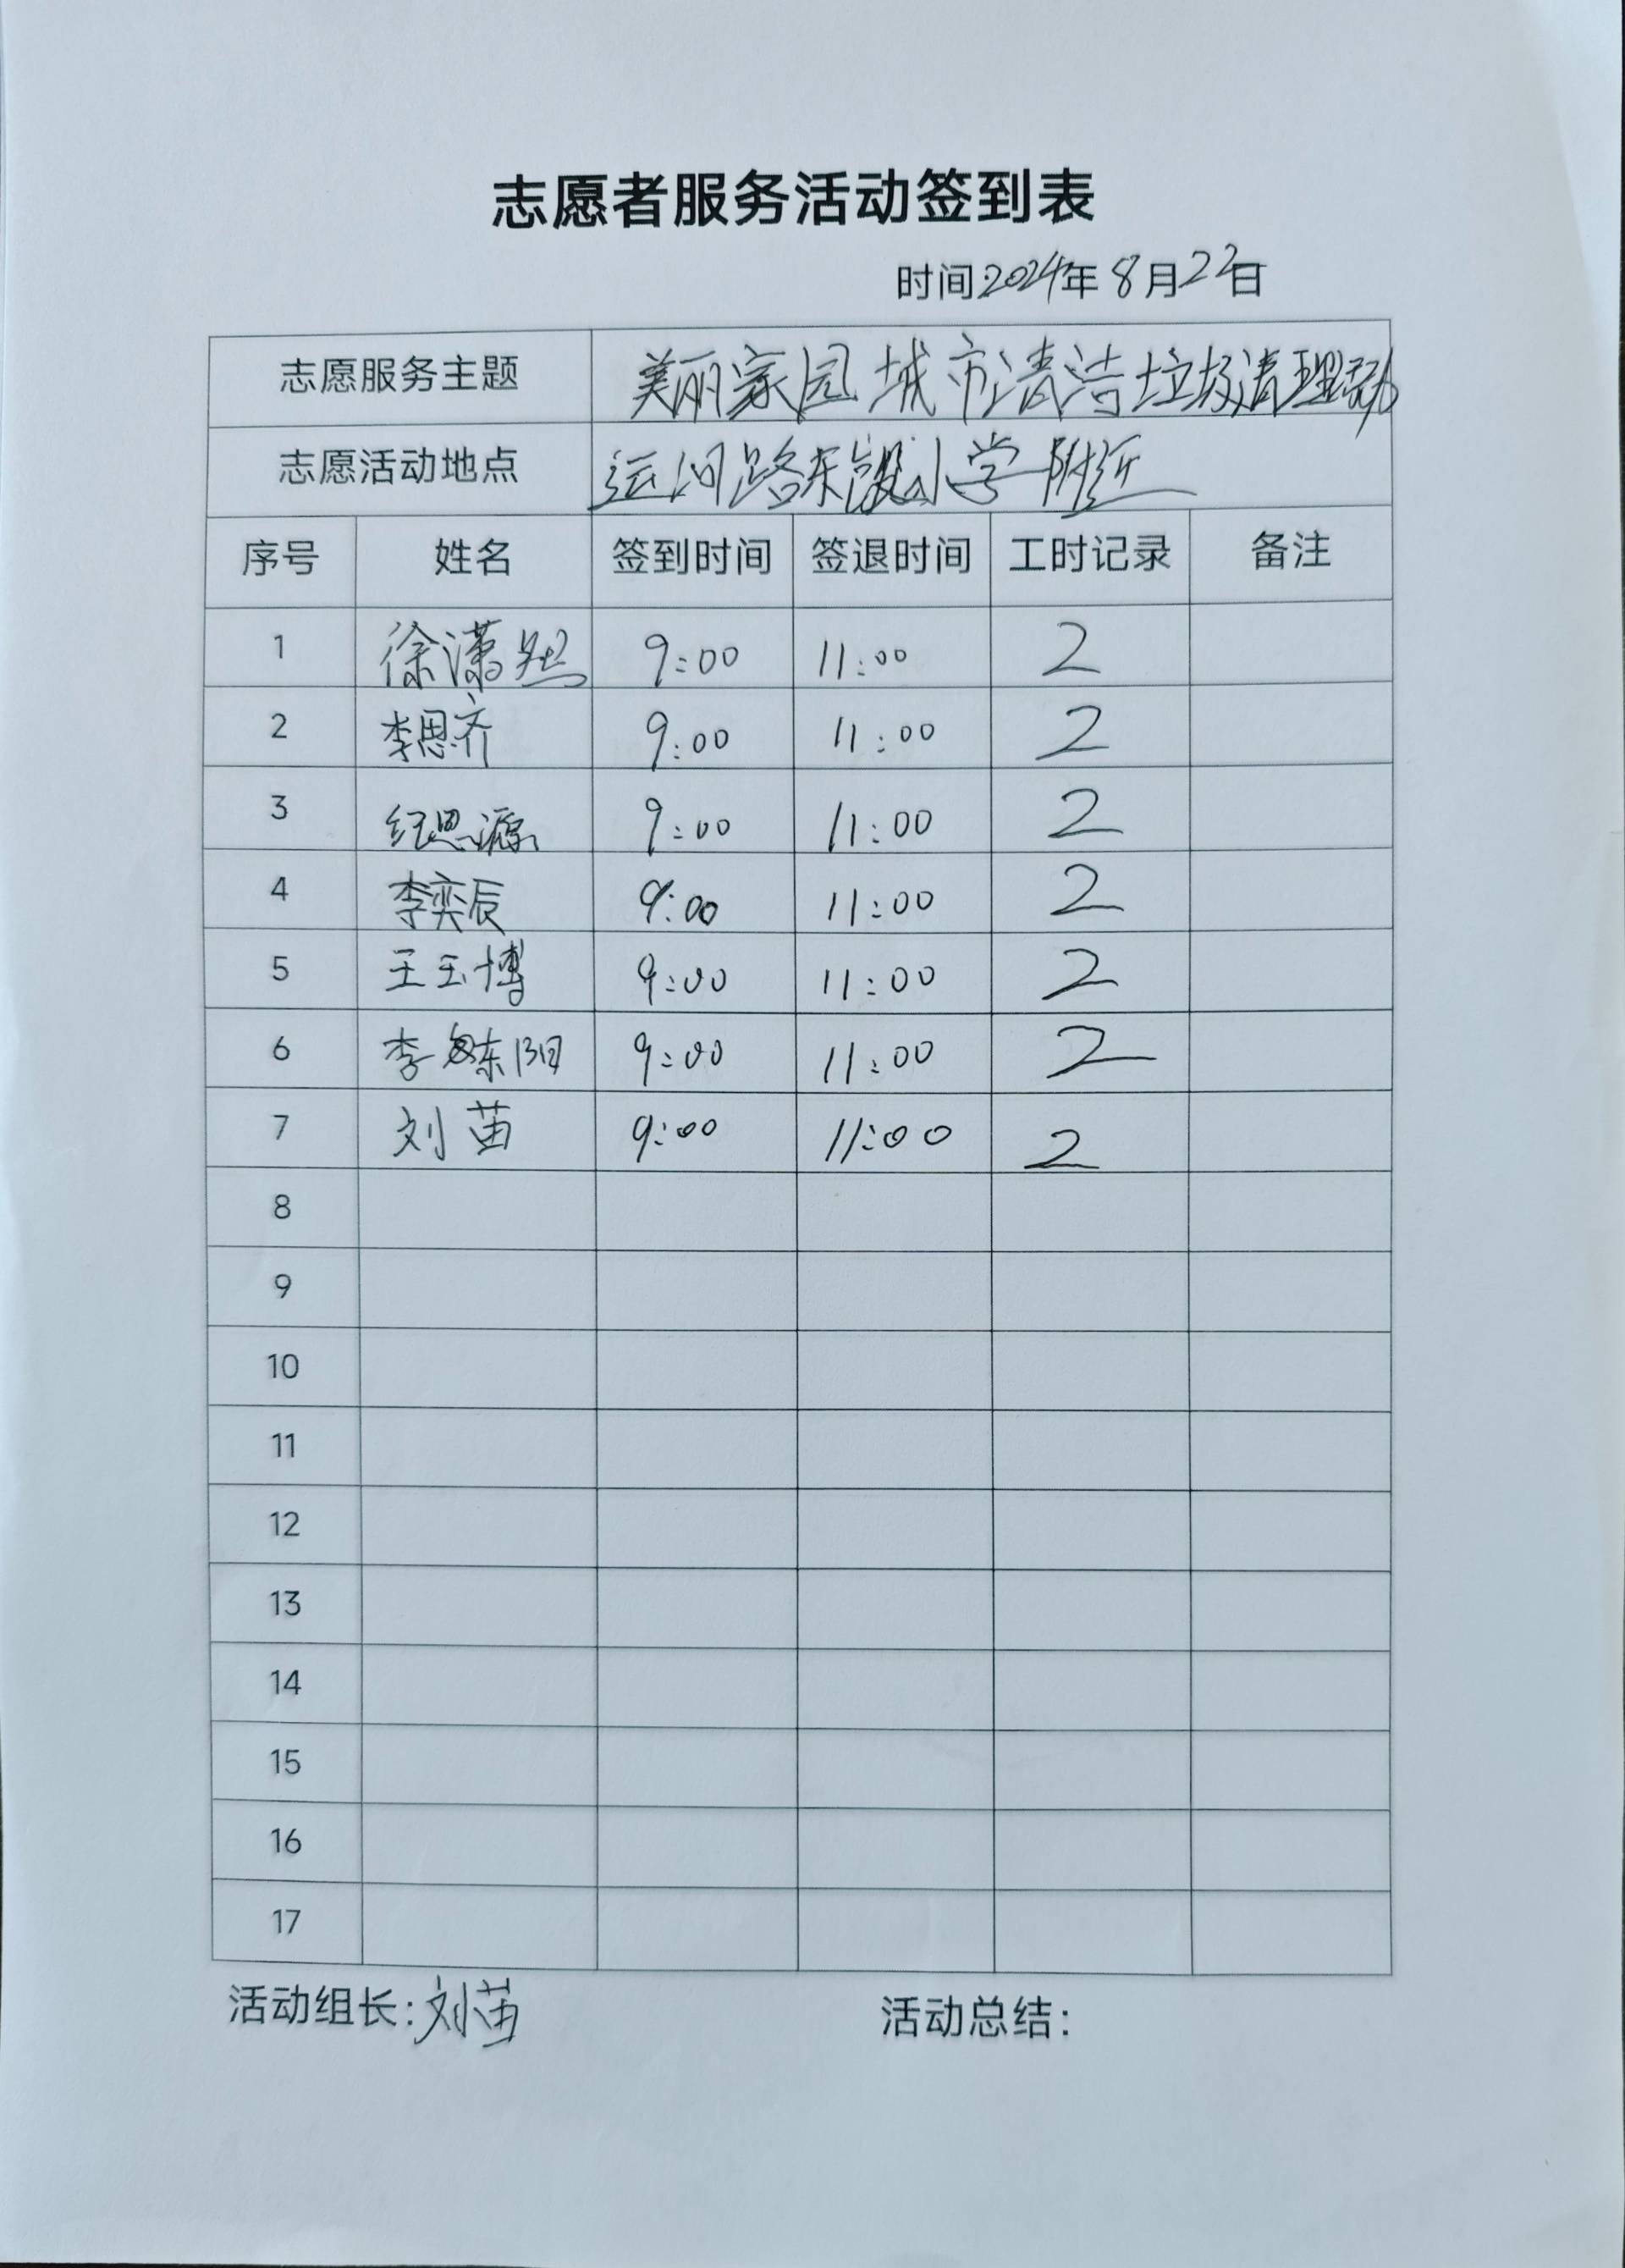 志愿者服务活动签到表
时间2024年8月22日
志愿服务主题 美丽家园城市清洁垃圾清理活动
志愿活动地点 运河路东段小学附近
序号 姓名 签到时间 签退时间 工时记录 备注
1 徐潇然 9:00 11:00 2
2 李思齐 9:00 11:00 2
3 纪思源 9:00 11:00 2
4 李奕辰 9:00 11:00 2
5 王玉博 9:00 11:00 2
6 李东阳 9:00 11:00 2
7 刘苗 9:00 11:00 2
8
9
10
11
12
13
14
15
16
17
活动组长:刘苗 活动总结: